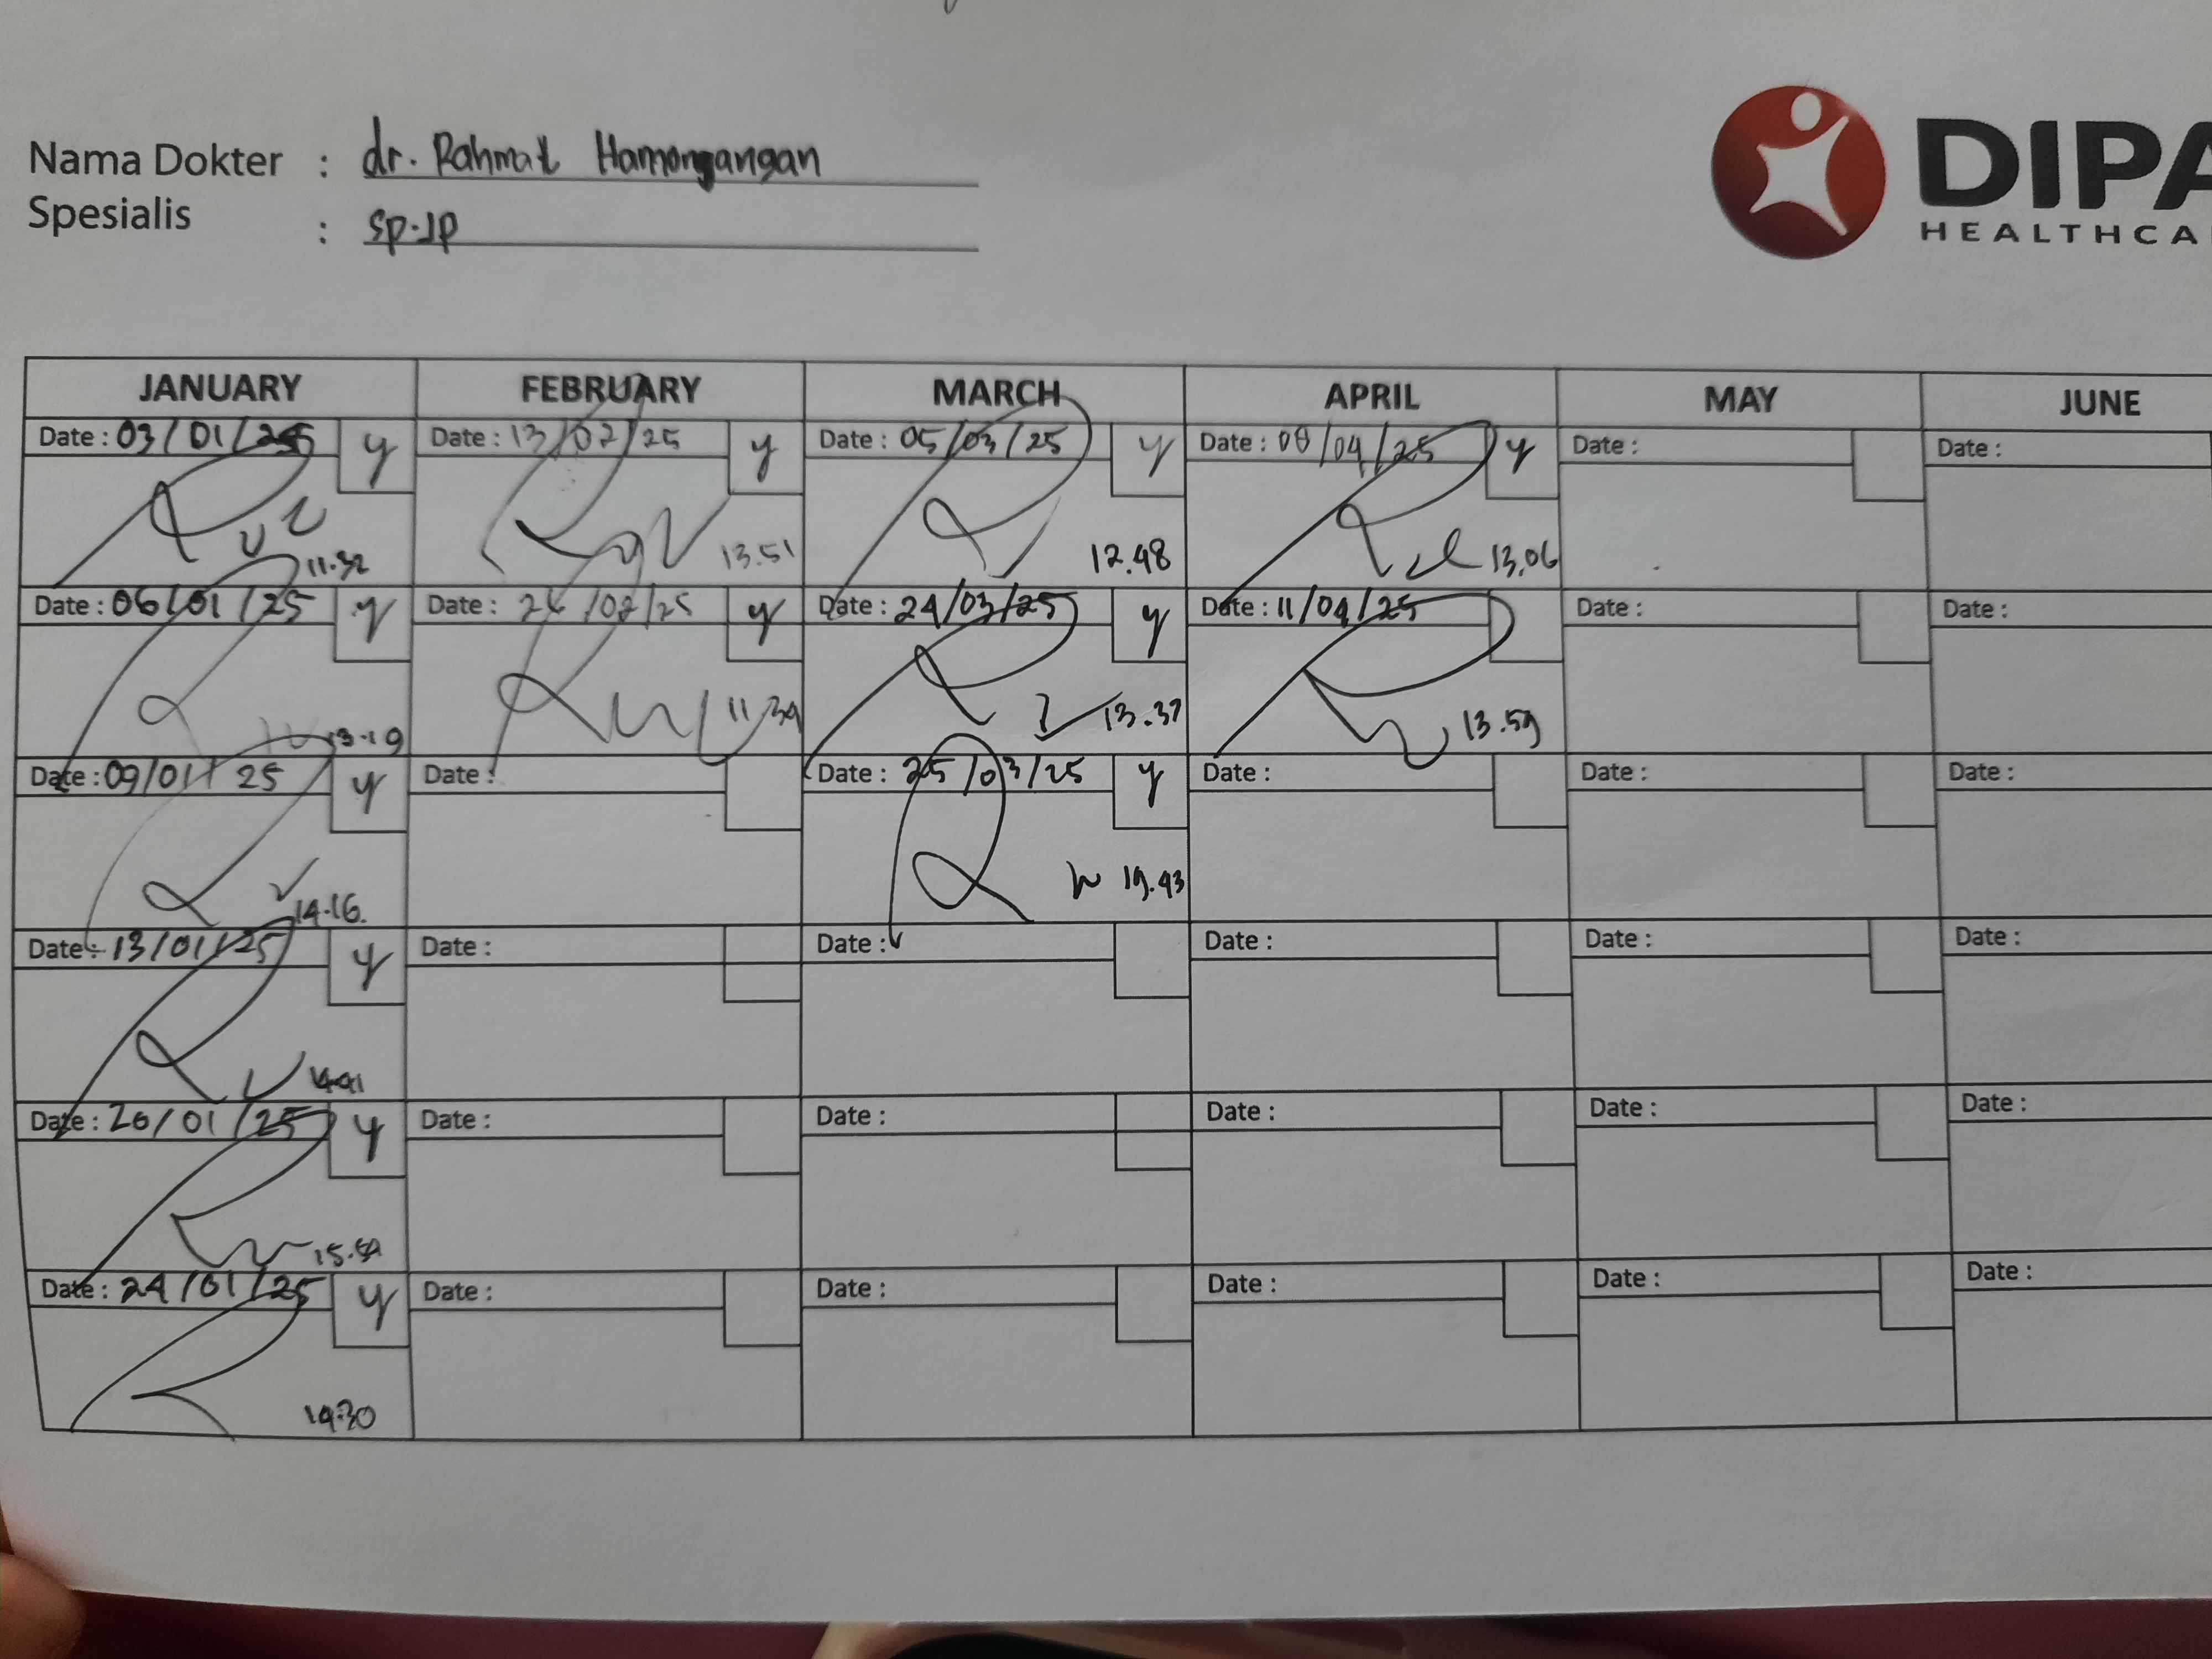 Nama Dokter : dr. Rahmat Hamongangan
Spesialis : Sp.JP
DIPA
HEALTHCA
JANUARY FEBRUARY MARCH APRIL MAY JUNE
Date : 03/01/25 y Date : 13/02/25 y Date : 05/03/25 y Date : 08/04/25 y Date : Date :
11.32 13.51 12.48 13.06
Date : 06/01/25 y Date : 26/02/25 y Date : 24/03/25 y Date : 11/04/25 Date : Date :
13.19 11.39 13.37 13.59
Date : 09/01/25 y Date : Date : 25/03/25 y Date : Date : Date :
14.16. 19.43
Date : 13/01/25 y Date : Date : Date : Date : Date :
14.41
Date : 20/01/25 y Date : Date : Date : Date : Date :
Date : 24/01/25 y Date : Date : Date : Date : Date :
14.30